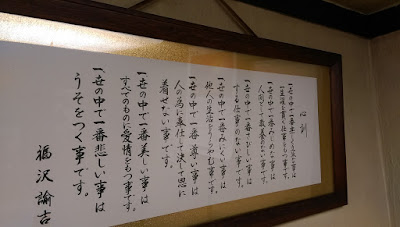 心訓
一世の中で一番楽しく立派な事は
一生涯を貫く仕事をもつ事です。
一世の中で一番みじめな事は
人間として教養のない事です。
一世の中で一番さびしい事は
する仕事のない事です。
一世の中で一番みにくい事は
他人の生活をうらやむ事です。
一世の中で一番尊い事は
人の為に奉仕して決して恩に
着せない事です。
一世の中で一番美しい事は
すべてのものに愛情をもつ事です。
一世の中で一番悲しい事は
うそをつく事です。
福沢諭吉